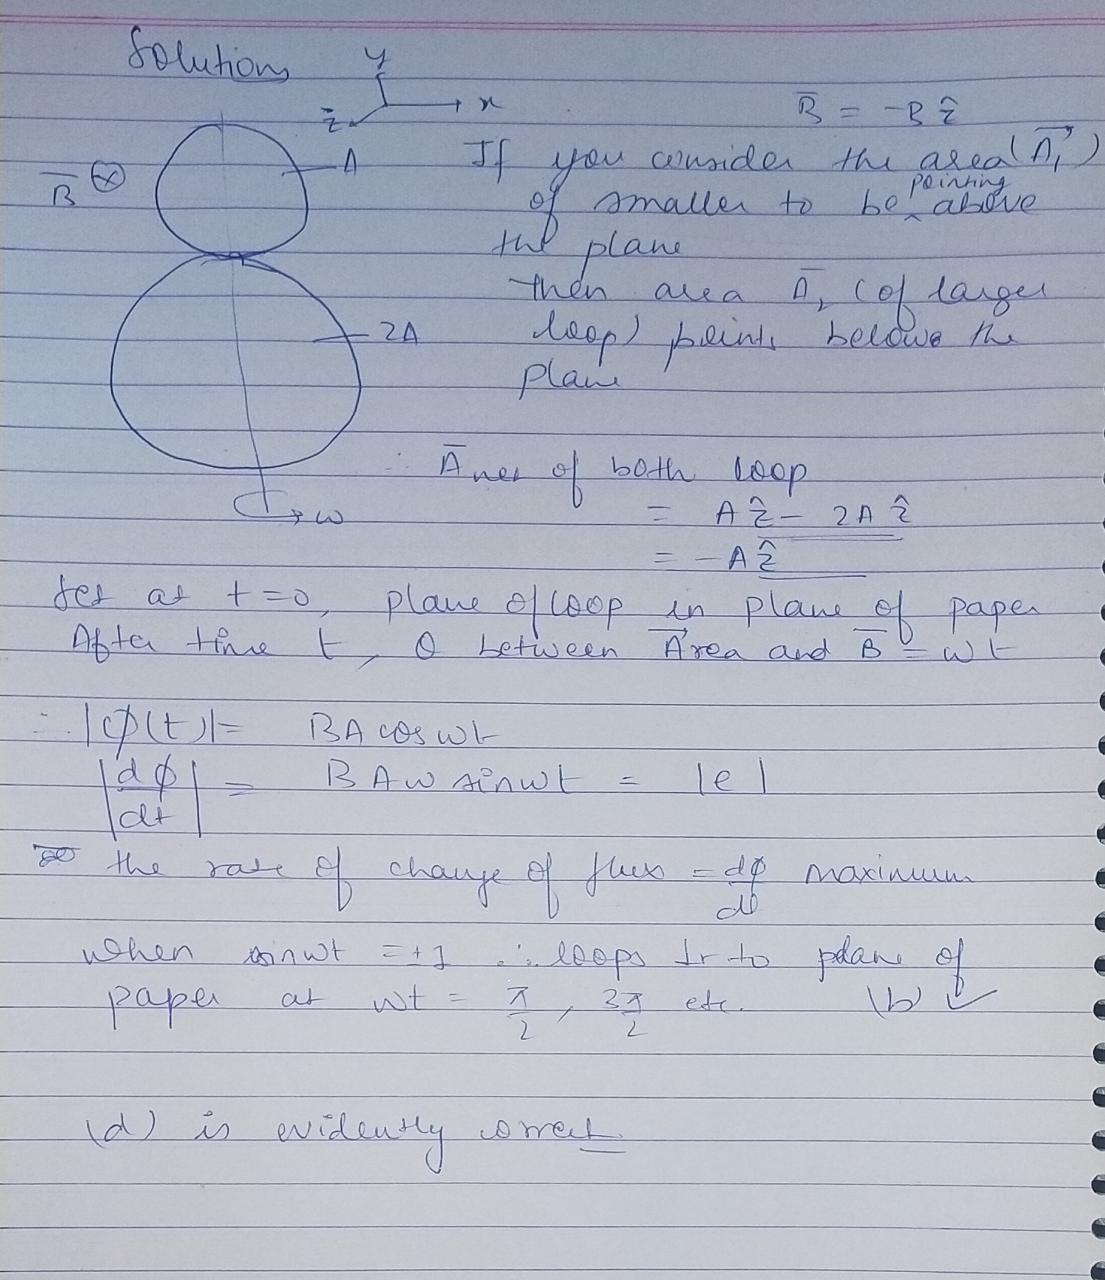 Solution
y
x
z
B̄ = -B ẑ
B̄ ⊗
A
If you consider the area (A⃗₁)
of smaller to be pointing above
the plane
then area Ā₂ (of larger
loop) points below the
2A
plane
∴ Ānet of both loop
= A ẑ - 2A ẑ
= -A ẑ
ω
let at t=0, plane of loop in plane of paper
After time t, θ between A⃗rea and B̄ = ωt
∴ |ϕ(t)| = BA cos ωt
|dϕ/dt| = BAω sin ωt = |e|
the rate of change of flux = dϕ/dt maximum
when sin ωt = ±1 ∴ loops ⊥r to plane of
paper at ωt = π/2, 3π/2 etc. (b) ✓
(d) is evidently correct